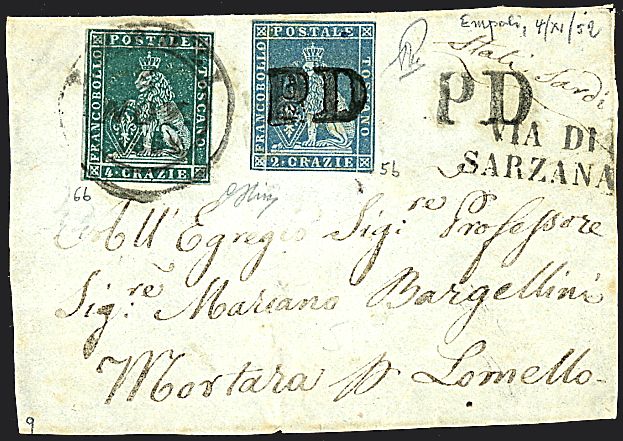 Empoli, 4/XI/52
Stati Sardi
FRANCOBOLLO POSTALE TOSCANO
4. CRAZIE
FRANCOBOLLO POSTALE TOSCANO
2. CRAZIE
PD
PD
VIA DI
SARZANA
6b
5b
All' Egregio Sigre Professore
Sigre Mariano Bargellini
Mortara p Lomello
9